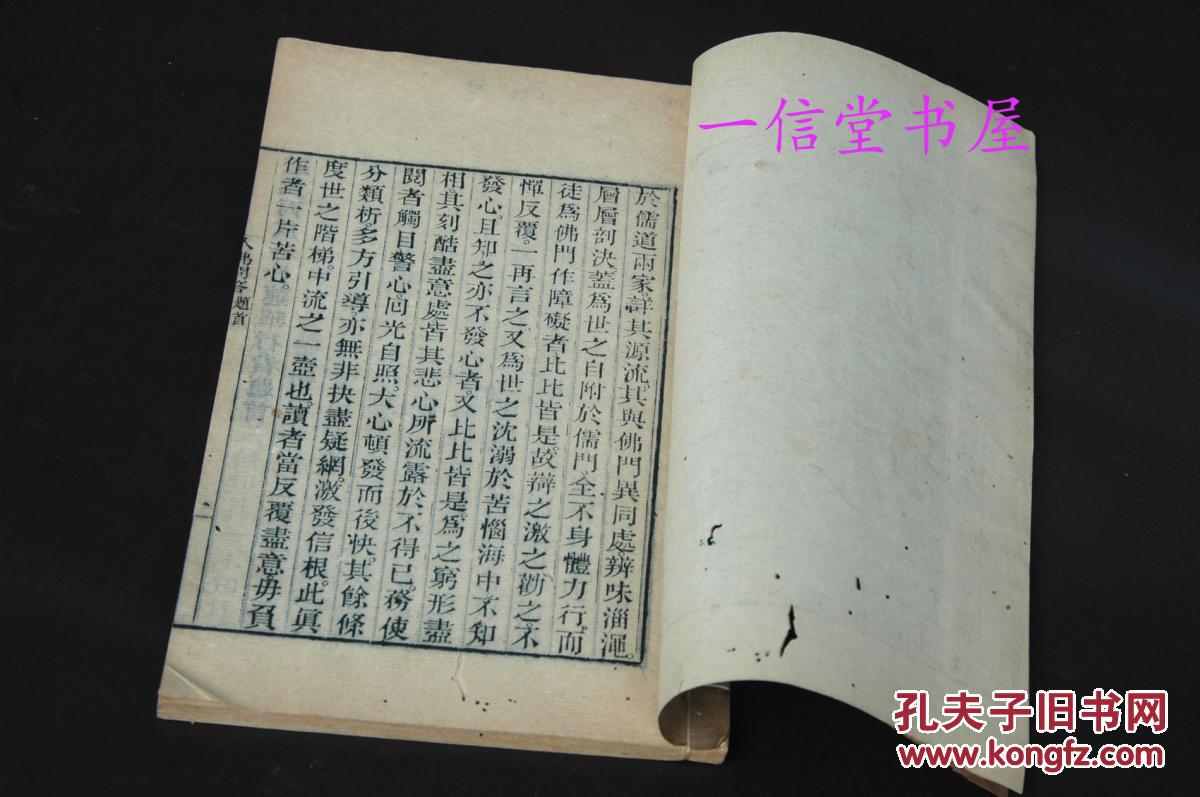 一信堂书屋
於儒道兩家詳其源流。其與佛門異同處。辨味淄澠。
層層剖決。蓋爲世之自附於儒門。全不身體力行。而
徒爲佛門作障礙者。比比皆是。故辯之激之勸之。不
憚反覆。一再言之。又爲世之沈溺於苦惱海中。不知
發心。且知之亦不發心者。又比比皆是。爲之窮形盡
相。其刻酷盡意處。皆其悲心所流露於不得已。務使
閱者觸目警心。回光自照。大心頓發而後快。其餘條
分類析。多方引導。亦無非抉盡疑網。激發信根。此眞
度世之階梯。中流之一壺也。讀者當反覆盡意。毋負
作者一片苦心。
入佛問答題首
一
孔夫子旧书网
www.kongfz.com